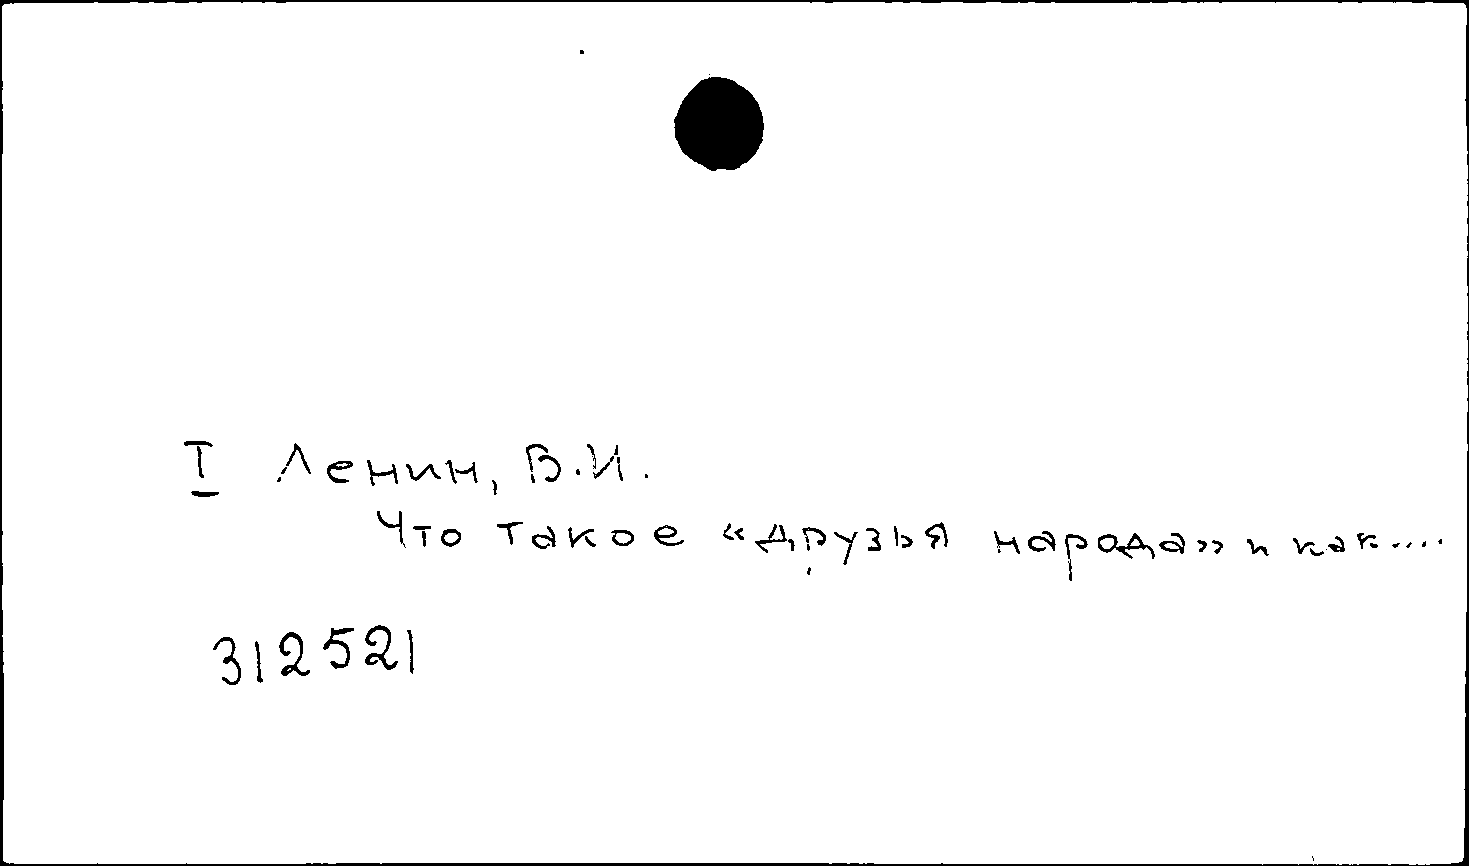 I Ленин, В.И.
Что такое «друзья народа» и как....
312521